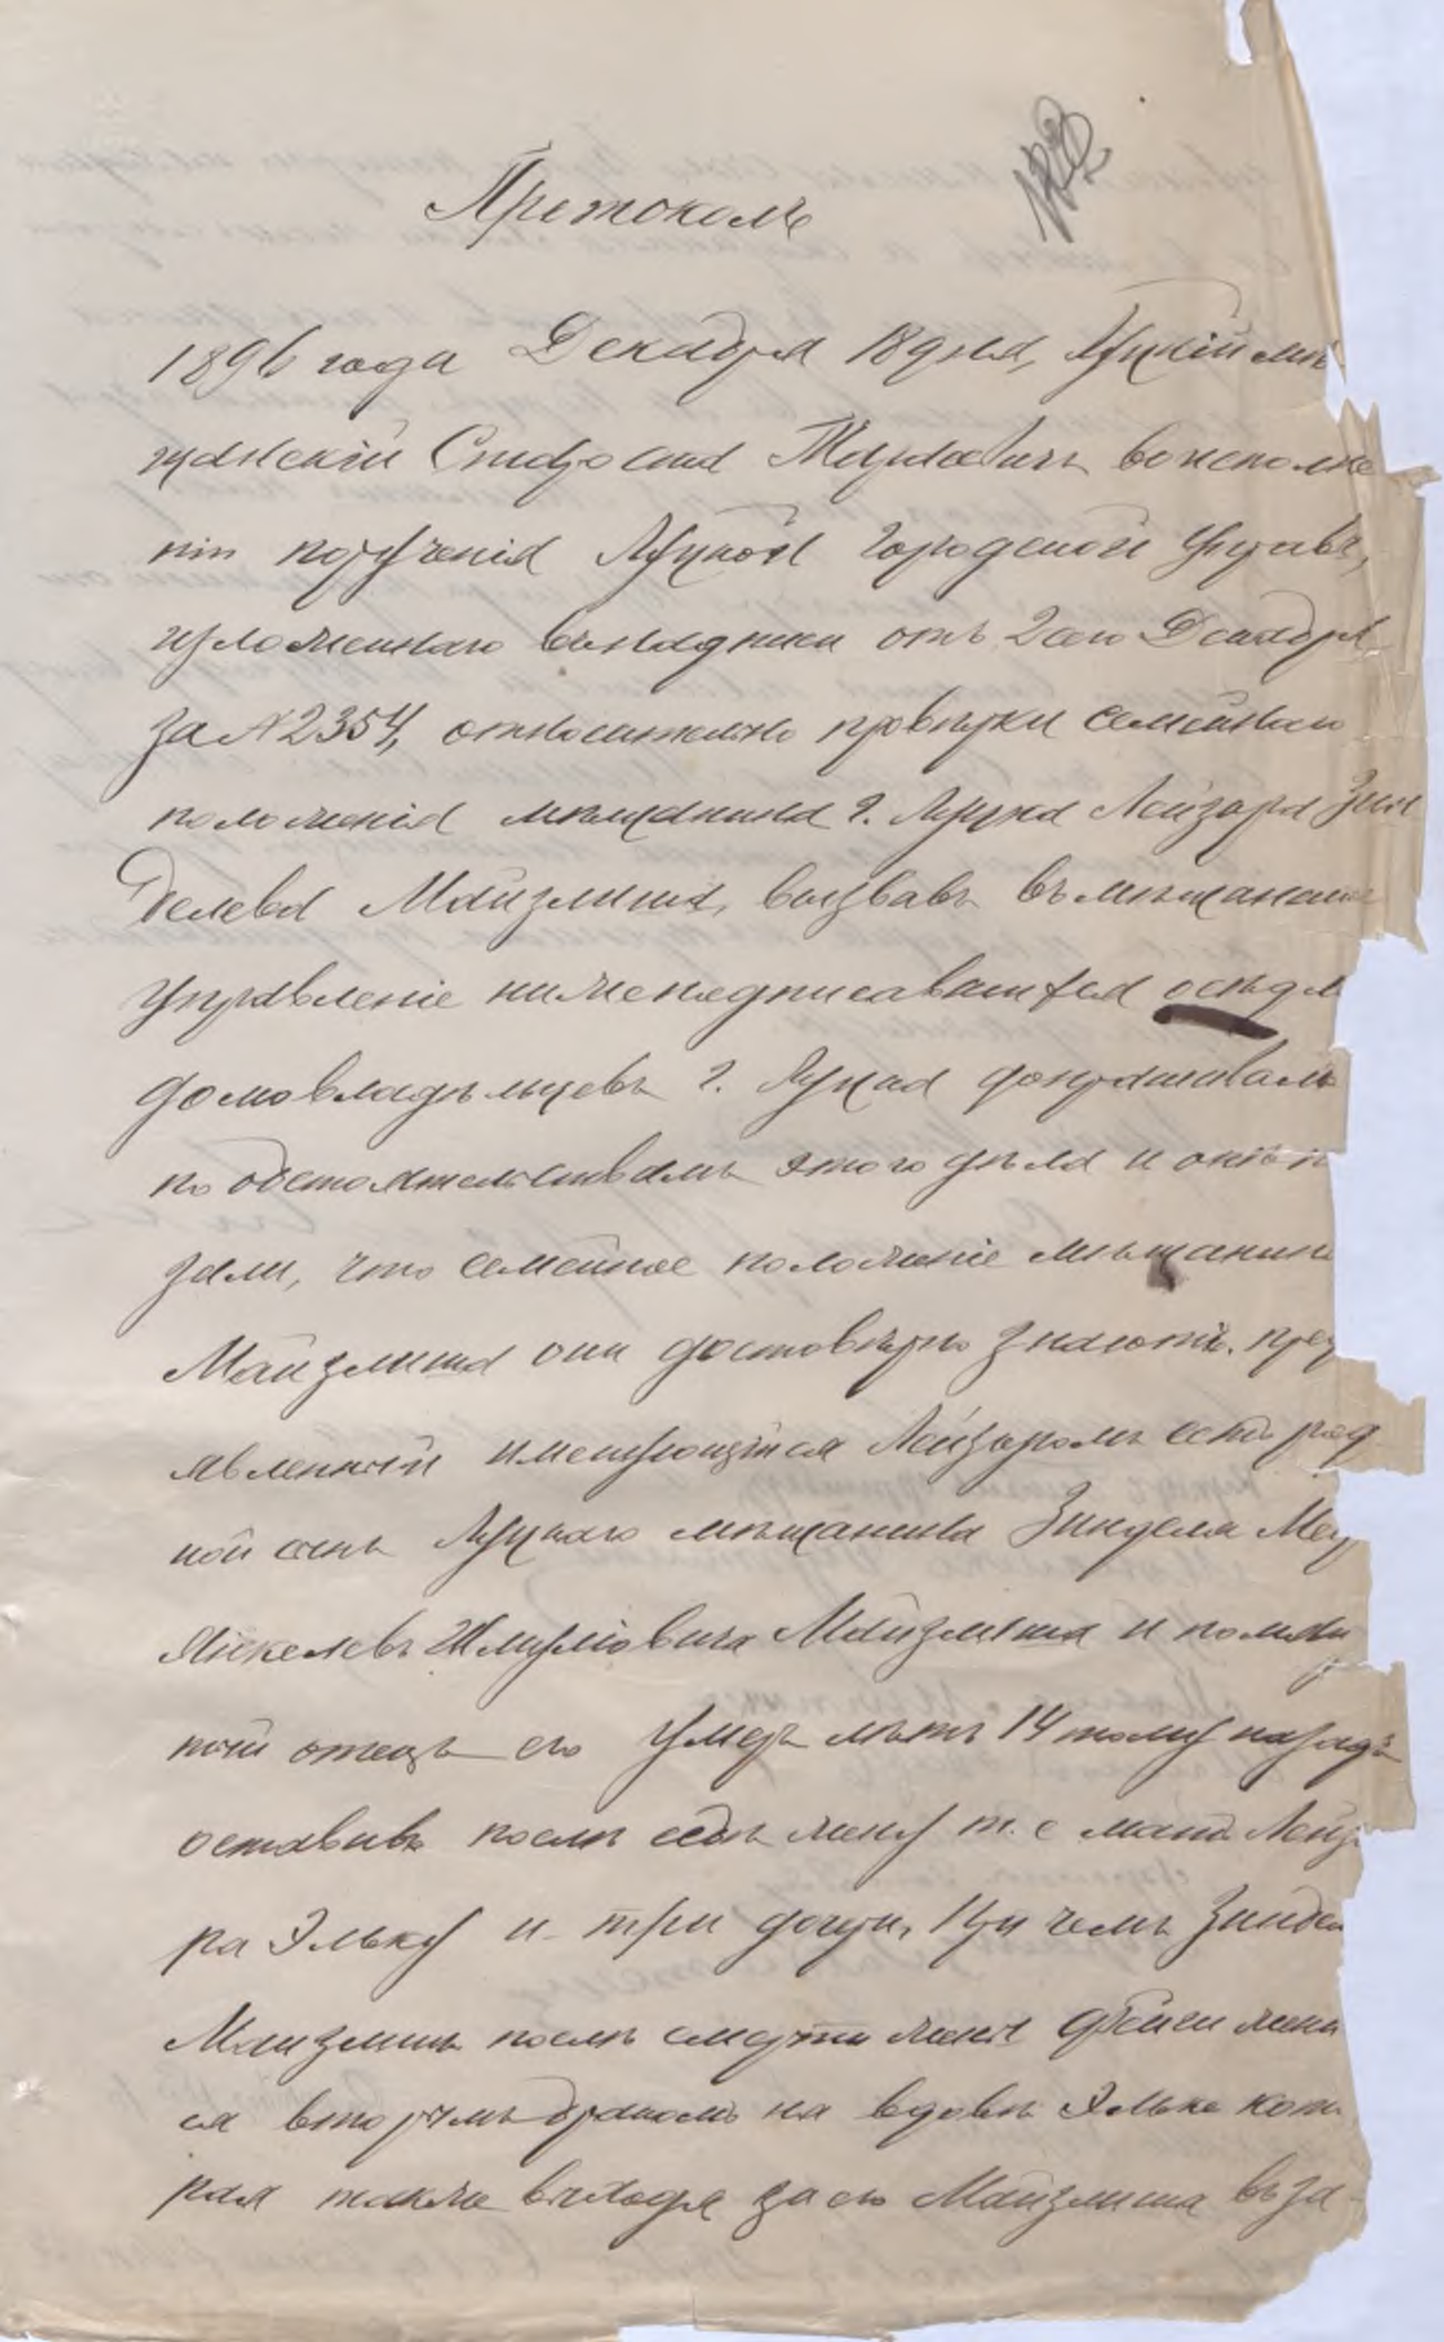 Протоколъ
1896 года Декабря 18 дня, Луцкій мѣ
щанскій Староста въ исполне
ніи порученія Луцкой Городской Управы,
изложеннаго въ надписи отъ 2 сего Декабря
за №2354, относительно провѣрки семейнаго
положенія мѣщанина г. Луцка Лейзора Зин
делева Майзлиша, вызвавъ въ мѣщанское
Управленіе нижеподписавшихся осѣдл
домовладѣльцевъ г. Луцка допрашивалъ
по обстоятельствамъ этого дѣла и они по
зали, что семейное положеніе мѣщанина
Майзлиша они достовѣрно знаютъ. пред
явленный именующійся Лейзоромъ есть род
ной сынъ Луцкаго мѣщанина Зинделя Меу
Янкелевъ Шмулiовича Майзлиша и
ной отецъ его умеръ лѣтъ 14 тому назадъ
оставивъ послѣ себя жену т. е мать Лейзо
ра Эльку и три дочери, При чемъ Зиндель
Майзлишъ послѣ смерти жены женил
ся вторымъ бракомъ на вдовѣ Эльке кото
рая также выходя за его Майзлиша въ за-